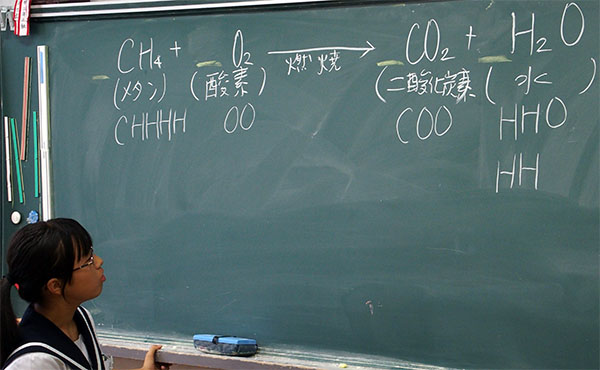 CH₄ + _ O₂ 燃焼 → _ CO₂ + _ H₂O
(メタン) (酸素) (二酸化炭素) (水)
CHHHH OO COO HHO
HH